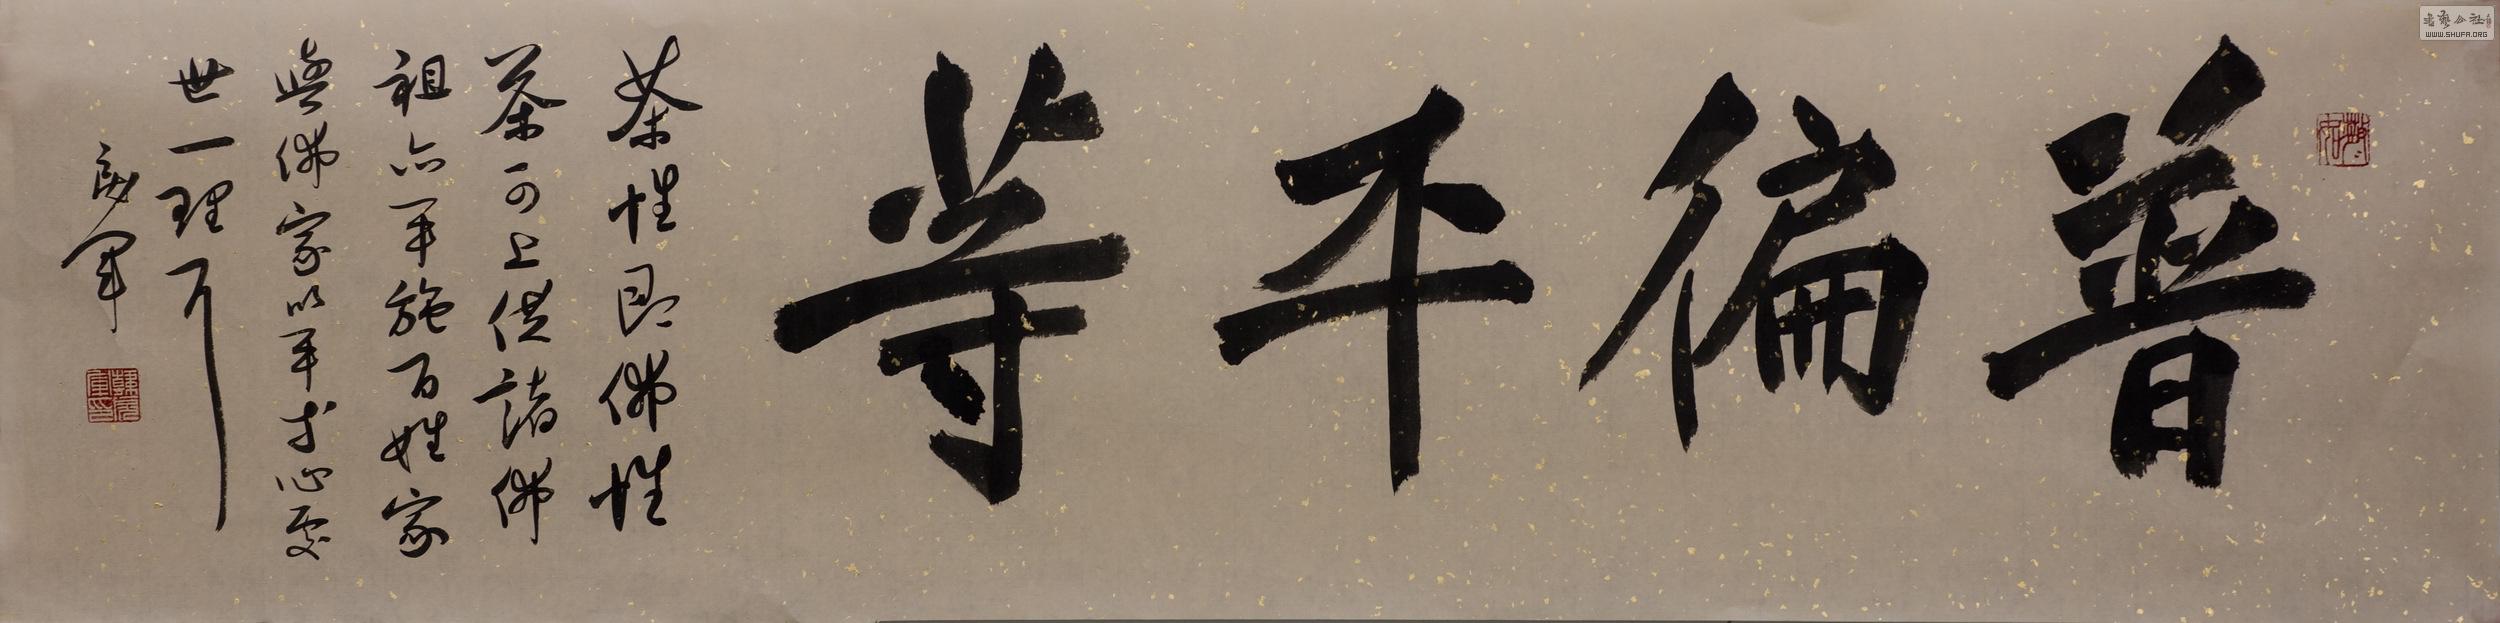 普徧平等
茶性即佛性
茶可上供諸佛
祖亦平施百姓家
與佛家以平等心處
世一理耳
書藝公社
WWW.SHUFA.ORG